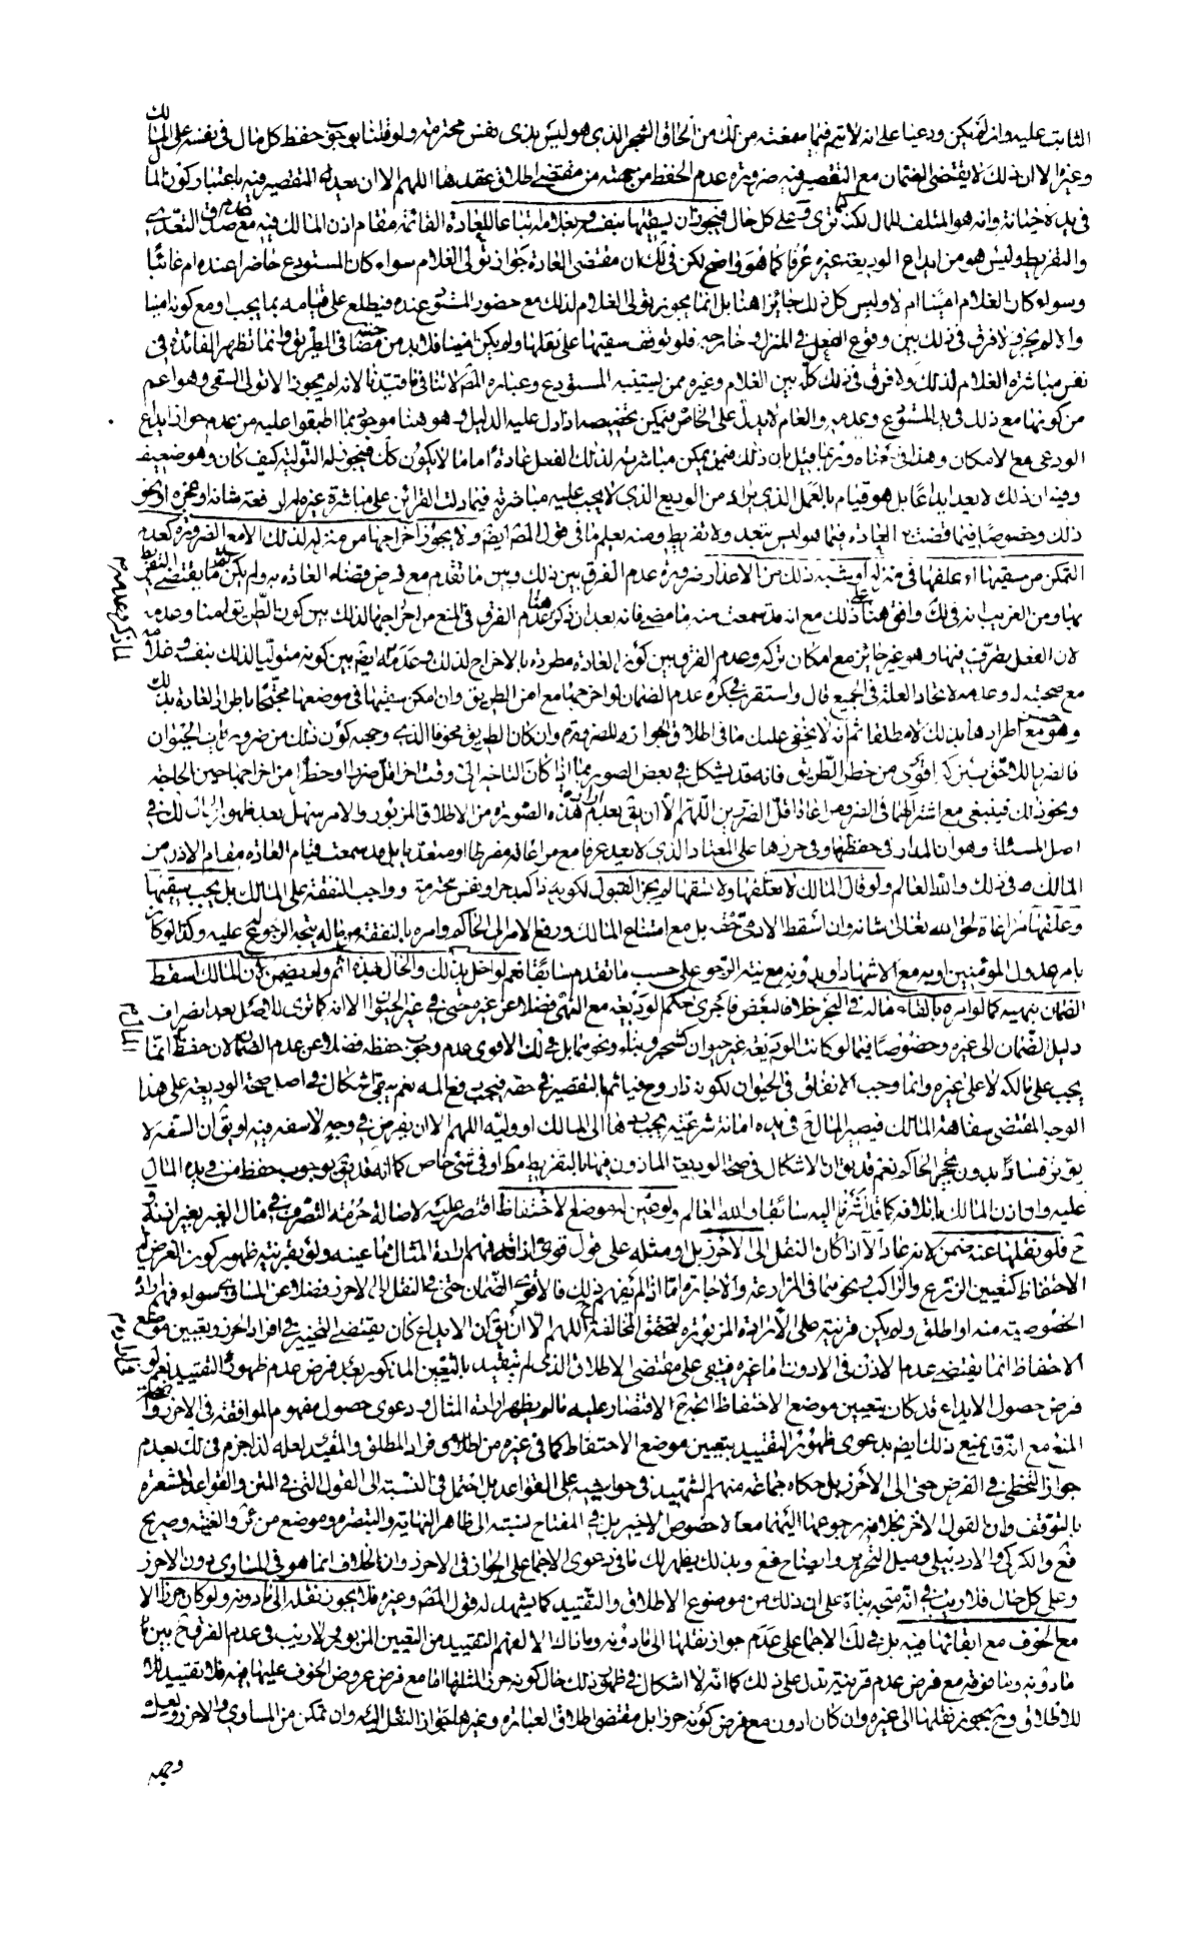 الثابت عليه وان لم يكن ودعيا على انه لا يتم فيما سمعته من لك من الحاق الشجر الذى هو ليس بذى نفس محترمة ولو قلنا بوجوب حفظ كل مال فى نفسه على المالك
وغيره الا ان ذلك لا يقتضى الضمان مع التقصير فيه ضرورة عدم الحفظ من جهته من مقتضى اطلاق عقدها اللهم الا ان يعد له المقصير فيه باعتبار كون المال
فى يده خيانة وانه هو المتلف للمال لكنه كما ترى وعلى كل حال فيجوز ان يسقيها بنفسه وبغلامه اتباعا للعادة القائمة مقام اذن المالك فيه مع عدم صدق التعدى
والتفريط وليس هو من ايداع الوديعة غيره عرفا كما هو واضح لكن فى لك ان مقتضى العادة جواز تولى الغلام سواء كان المستودع حاضرا عنده ام غائبا
وسواء كان الغلام امينا ام لا وليس كل ذلك جائزا هنا بل انما يجوز تولى الغلام لذلك مع حضور المستودع عنده فيطلع على قيامه بما يجب او مع كونه امينا
والا لم يجز ولا فرق فى ذلك بين وقوع الفعل فى المنزل وخارجه فلو توقف سقيها على نقلها ولم يكن امينا فلا بد من مصاحبته فى الطريق وانما تظهر الفائدة فى
نفس مباشرة الغلام لذلك ولا فرق فى ذلك كله بين الغلام وغيره ممن يستنيبه المستودع وعبارة المص لا تنافى ما قيدناه لانه لم يجوز الا تولى السقى وهو اعم
من كونها مع ذلك فى يد المستودع وعدمه والعام لا يدل على الخاص فيمكن تخصيصه اذا دل عليه الدليل وهو هنا موجود لما اطبقوا عليه من عدم جواز ايداع
الودعى مع الامكان وهذا فى معناه وربما قيل بان ذلك فيمن يمكن مباشرته لذلك الفعل عادة اما من لا يكون كك فيجوز له التولية كيف كان وهو ضعيف
وفيه ان ذلك لا يعد ايداعا بل هو قيام بالعمل الذى يراد من الوديع الذى لا يجب عليه مباشرته فيما دلت القرائن على مباشرة غيره له لرفعة شانه او عجزه او نحو
ذلك وخصوصا فيما قضت العادة فيما هو ليس بتعد ولا تفريط ومنه يعلم ما فى قول المص ايضا ولا يجوز اخراجها من منزله لذلك الا مع الضرورة كعدم
التمكن من سقيها او علفها فى منزله او شبه ذلك من الاعذار ضرورة عدم الفرق بين ذلك وبين ما تقدم مع فرض قضاء العادة به ولم يكن ثم ما يقتضى التفريط
بها ومن الغريب انه فى لك وافق هنا على ذلك مع انه قد سمعت منه ما مضى فانه بعد ان ذكر هنا عدم الفرق فى المنع من اخراجها لذلك بين كون الطريق امنا وعدمه
لان الفعل تصرف فيها وهو غير جائز مع امكان تركه وعدم الفرق بين كون العادة مطردة بالاخراج لذلك وعدمه ايضا بين كونه متوليا لذلك بنفسه وغلامه
مع صحبته له وعدمه لاتحاد العلة فى الجميع قال واستقرب فى كره عدم الضمان لو اخرجها مع امن الطريق وان امكن سقيها فى موضعها محتجا باطراد العادة بذلك
وهو حسن مع اطرادها بذلك لا مطلقا ثم انه لا يخفى عليك ما فى اطلاق الجواز للضرورة وان كان الطريق مخوفا الذى وجهه كون ذلك من ضرورته باب الحيوان
فالضرر اللاحق بتركه اقوى من خطر الطريق فانه قد يشكل فى بعض الصور بما اذا كان التاخير الى وقت اخر اقل ضررا وخطرا من اخراجها حين الحاجة
ونحو ذلك فينبغى مع اشتراكهما فى الضرر مراعاة اقل الضررين اللهم الا ان يق بعدم ارادة هذه الصورة من الاطلاق المزبور والامر سهل بعد ظهور الحال لك فى
اصل المسئلة وهو ان المدار فى حفظها وفى حرزها على المعتاد الذى لا يعد عرفا مع مراعاته مفرطا او متعديا بل قد سمعت قيام العادة مقام الاذن من
المالك فى ذلك والله العالم ولو قال المالك لا تعلفها ولا تسقها لم يجز القبول لكونه ذا كبد حرا ونفس محترمة وواجب النفقة على المالك بل يجب سقيها
وعلفها مراعاة لحق الله تعالى شانه وان اسقط الادمى حقه بل مع امتناع المالك ورفع الامر الى الحاكم وامره بالنفقة من ماله يتجه الرجوع عليه وكذا لو كان
بامر عدول المؤمنين او به مع الاشهاد او بدونه مع نيته الرجوع على حسب ما تقدم سابقا نعم لو اخل بذلك والحال هذه اثم ولم يضمن لان المالك اسقط
الضمان بنهيه كما لو امره بالقاء ماله فى البحر خلافا لبعض فاجرى حكم الوديعة مع النهى فضلا عن غيره حتى فى غير الحيوان الا انه كما ترى للاصل بعد انصراف
دليل الضمان الى غيره وخصوصا فيما لو كانت الوديعة غير حيوان كشجر وبناء ونحوهما بل فى لك الاقوى عدم وجوب حفظه فضلا عن عدم الضمان لان حفظ المال انما
يجب على مالكه لا على غيره وانما وجب الانفاق فى الحيوان لكونه ذا روح فياثم بالتقصير فى حقه فيجب دفع المه نعم يبقى اشكال فى اصل صحة الوديعة على هذا
الوجه المقتضى سفاهة المالك فيصير المال ح فى يده امانة شرعية يجب ردها الى المالك او وليه اللهم الا ان يفرض فى وجه لا سفه فيه او يق ان السفه لا
يؤثر فسادا بدون حجر الحاكم نعم قد يق ان الاشكال فى صحة الوديعة الماذون فيها بالتفريط مط او فى شئ خاص كما انه قد يق بوجوب حفظ من فى يده المال
عليه وان اذن المالك باتلافه كما قدمناه سابقا والله العالم ولو عين له موضع الاحتفاظ اقتصر عليه لاصالة حرمة التصرف فى مال الغير بغير اذنه
ح فلو نقلها عنه ضمن لانه عاد الا اذا كان النقل الى الاحرز بل او مثله على قول قوى اذا فهم ارادة المثال مما عينه ولو بقرينة ظهور كون الغرض
الاحتفاظ كتعيين الزرع والراكب ونحوهما فى المزارعة والاجارة واما اذا لم يفهم ذلك فالاقوى الضمان حتى فى النقل الى الاحرز فضلا عن المساوى سواء فهم ارادة
الخصوصية منه او اطلق ولم يكن قرينة على الارادة المزبورة لتحقق المخالفة ح اللهم الا ان يق ان الايداع كان يقتضى التخيير فى افراد الحرز وتعيين موضع
الاحتفاظ انما يقتضى عدم الاذن فى الادون اما غيره فيبقى على مقتضى الاطلاق الذى لم يتقيد بالتعيين المذكور بعد فرض عدم ظهور التقييد نعم لو
فرض حصول الايداع قد كان بتعيين موضع الاحتفاظ اتجه ح الاقتصار عليه ما لم يظهر ارادة المثال ودعوى حصول مفهوم الموافقة فى الاحرز واضحة
المنع مع انه قد يمنع ذلك ايضا بدعوى ظهور التقييد بتعيين موضع الاحتفاظ كما فى غيره من افراد المطلق والمقيد لعله لذا جزم فى لك بعدم
جواز التخطى فى الفرض حتى الى الاحرز بل حكاه جماعة منهم الشهيد فى حواشيه على القواعد بل احتمل فى النسبة الى القول التى فى المتن والقواعد المشعرة
بالتوقف وان القول الاخر بخلافه رجوعها اليهما معا لا خصوص الاخير بل فى المفتاح نسبته الى ظاهر النهاية والتبصرة وموضع من عر والغنية وصريح
فع والكركى والاردبيلى وميل التحرير وايضاح فع وبذلك يظهر لك ما فى دعوى الاجماع على الجواز فى الاحرز وان الخلاف انما هو فى المساوى دون الاحرز
وعلى كل حال فلا ريب فى انه متجه بناء على ان ذلك من موضوع الاطلاق والتقييد كما يشهد له قول المص وغيره فلا يجوز نقله الى ما دونه ولو كان حرزا الا
مع الخوف مع ابقائها فيه بل فى لك الاجماع على عدم جواز نقلها الى ما دونه وما ذاك الا لفهم التقييد من التعيين المزبور اذ لا ريب فى عدم الفرق ح بين ما
ما دونه وما فوقه مع فرض عدم قرينة تدل على ذلك كما انه لا اشكال فى ظهور ذلك حال كونه حرزا لمثلها اما مع فرض عروض الخوف عليها فيه فلا تقييد ولا
للاطلاق وح يجوز نقلها الى غيره وان كان ادون مع فرض كونه حرزا بل مقتضى اطلاق العبارة وغيرها جواز النقل اليه وان تمكن من المساوى والاحرز ولعله
وجهه